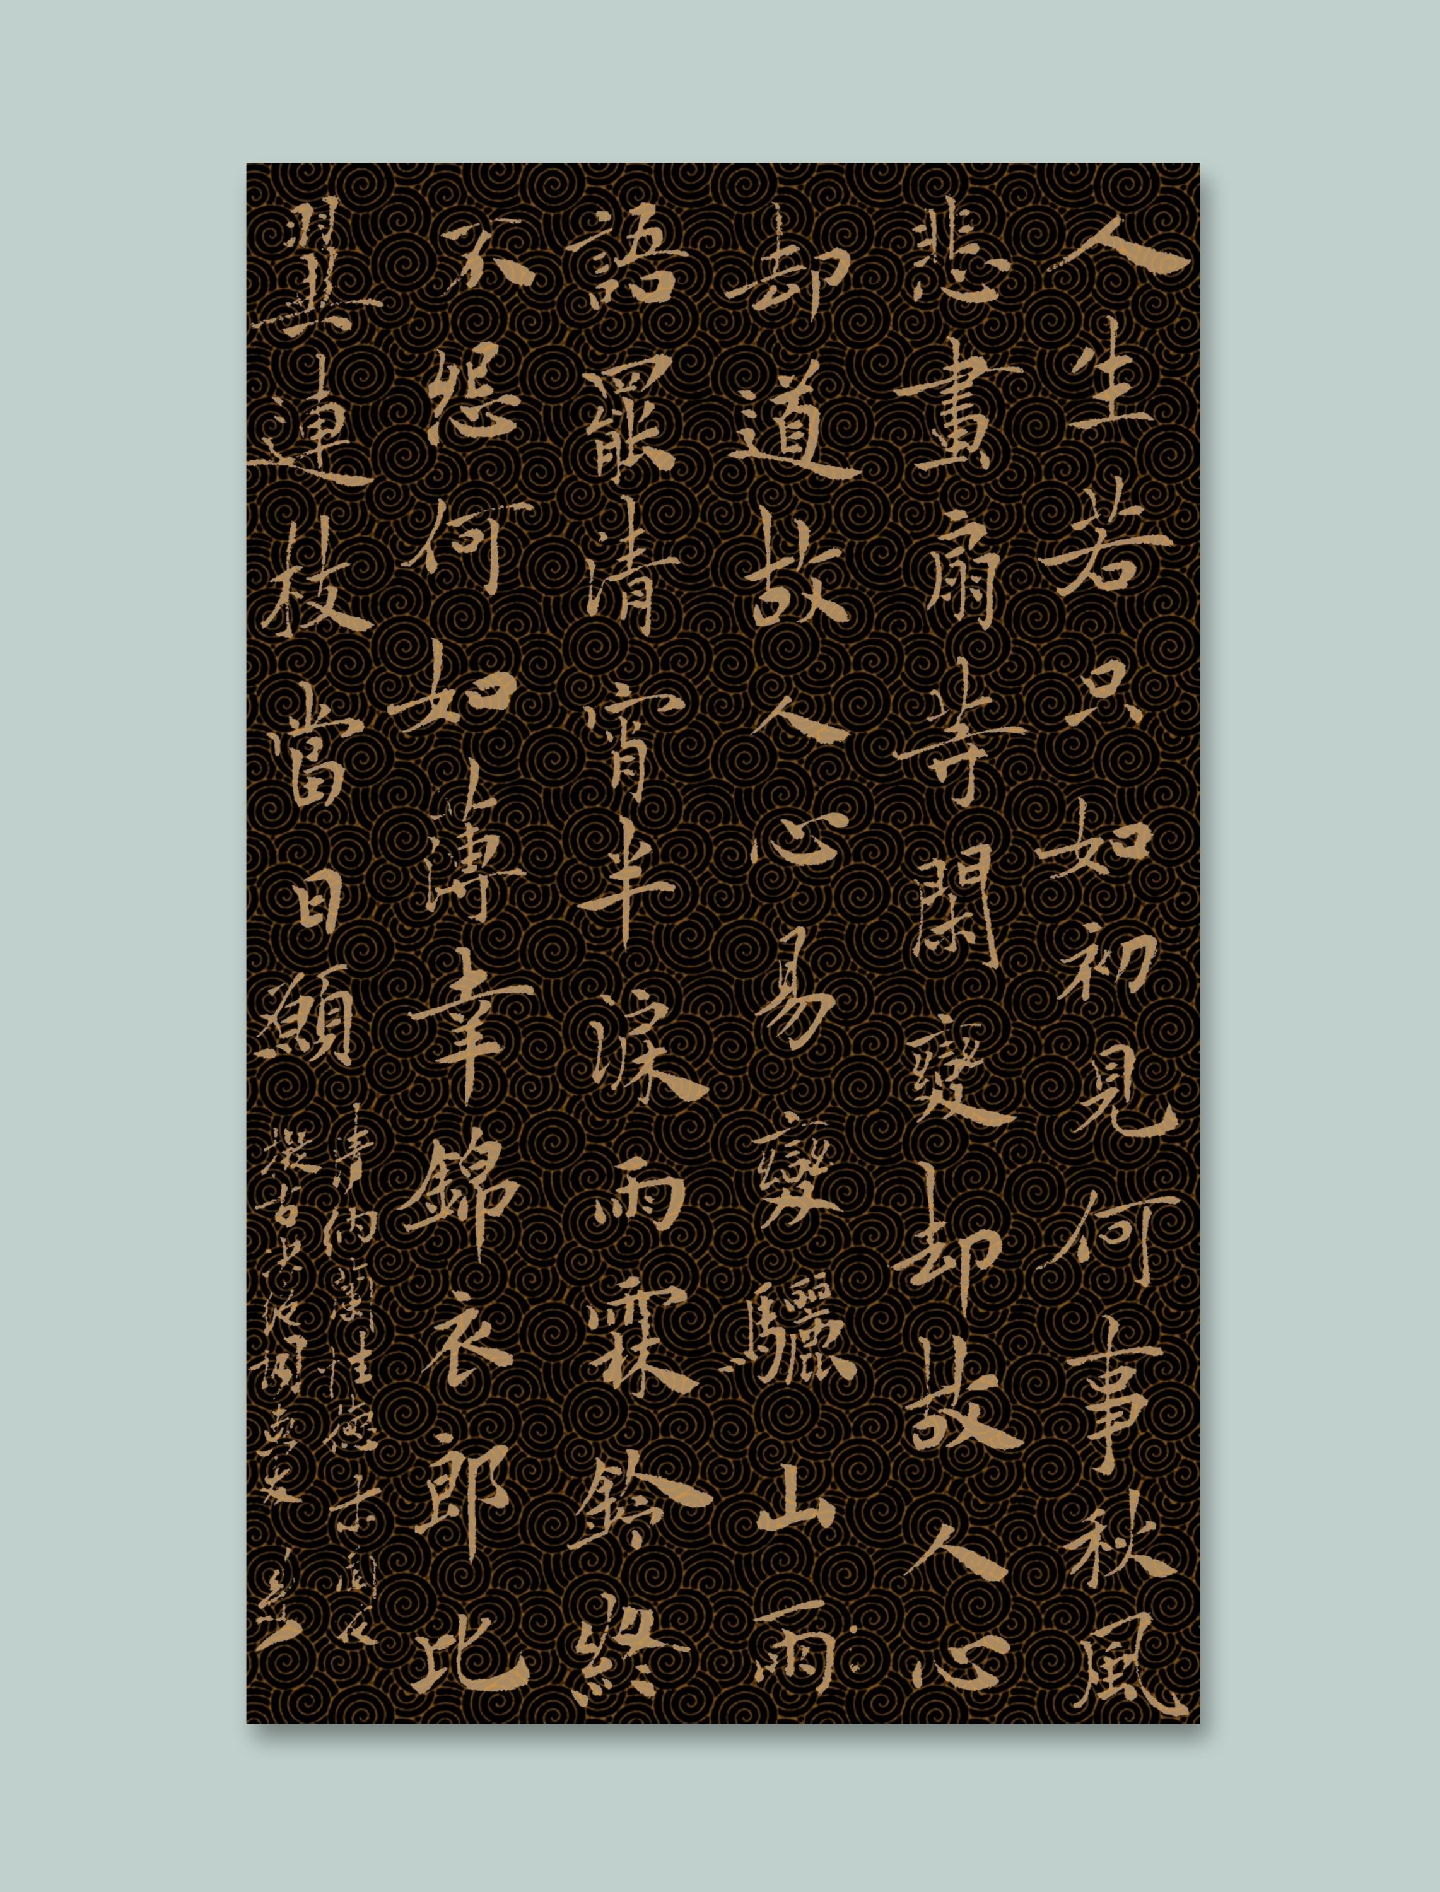 人生若只如初見何事秋風
悲畫扇等閑變却故人心
却道故人心易變驪山雨
語罷清宵半淚雨霖鈴終
不怨何如薄幸錦衣郎比
翼連枝當日願
清納蘭性德木蘭花
擬古決絕詞